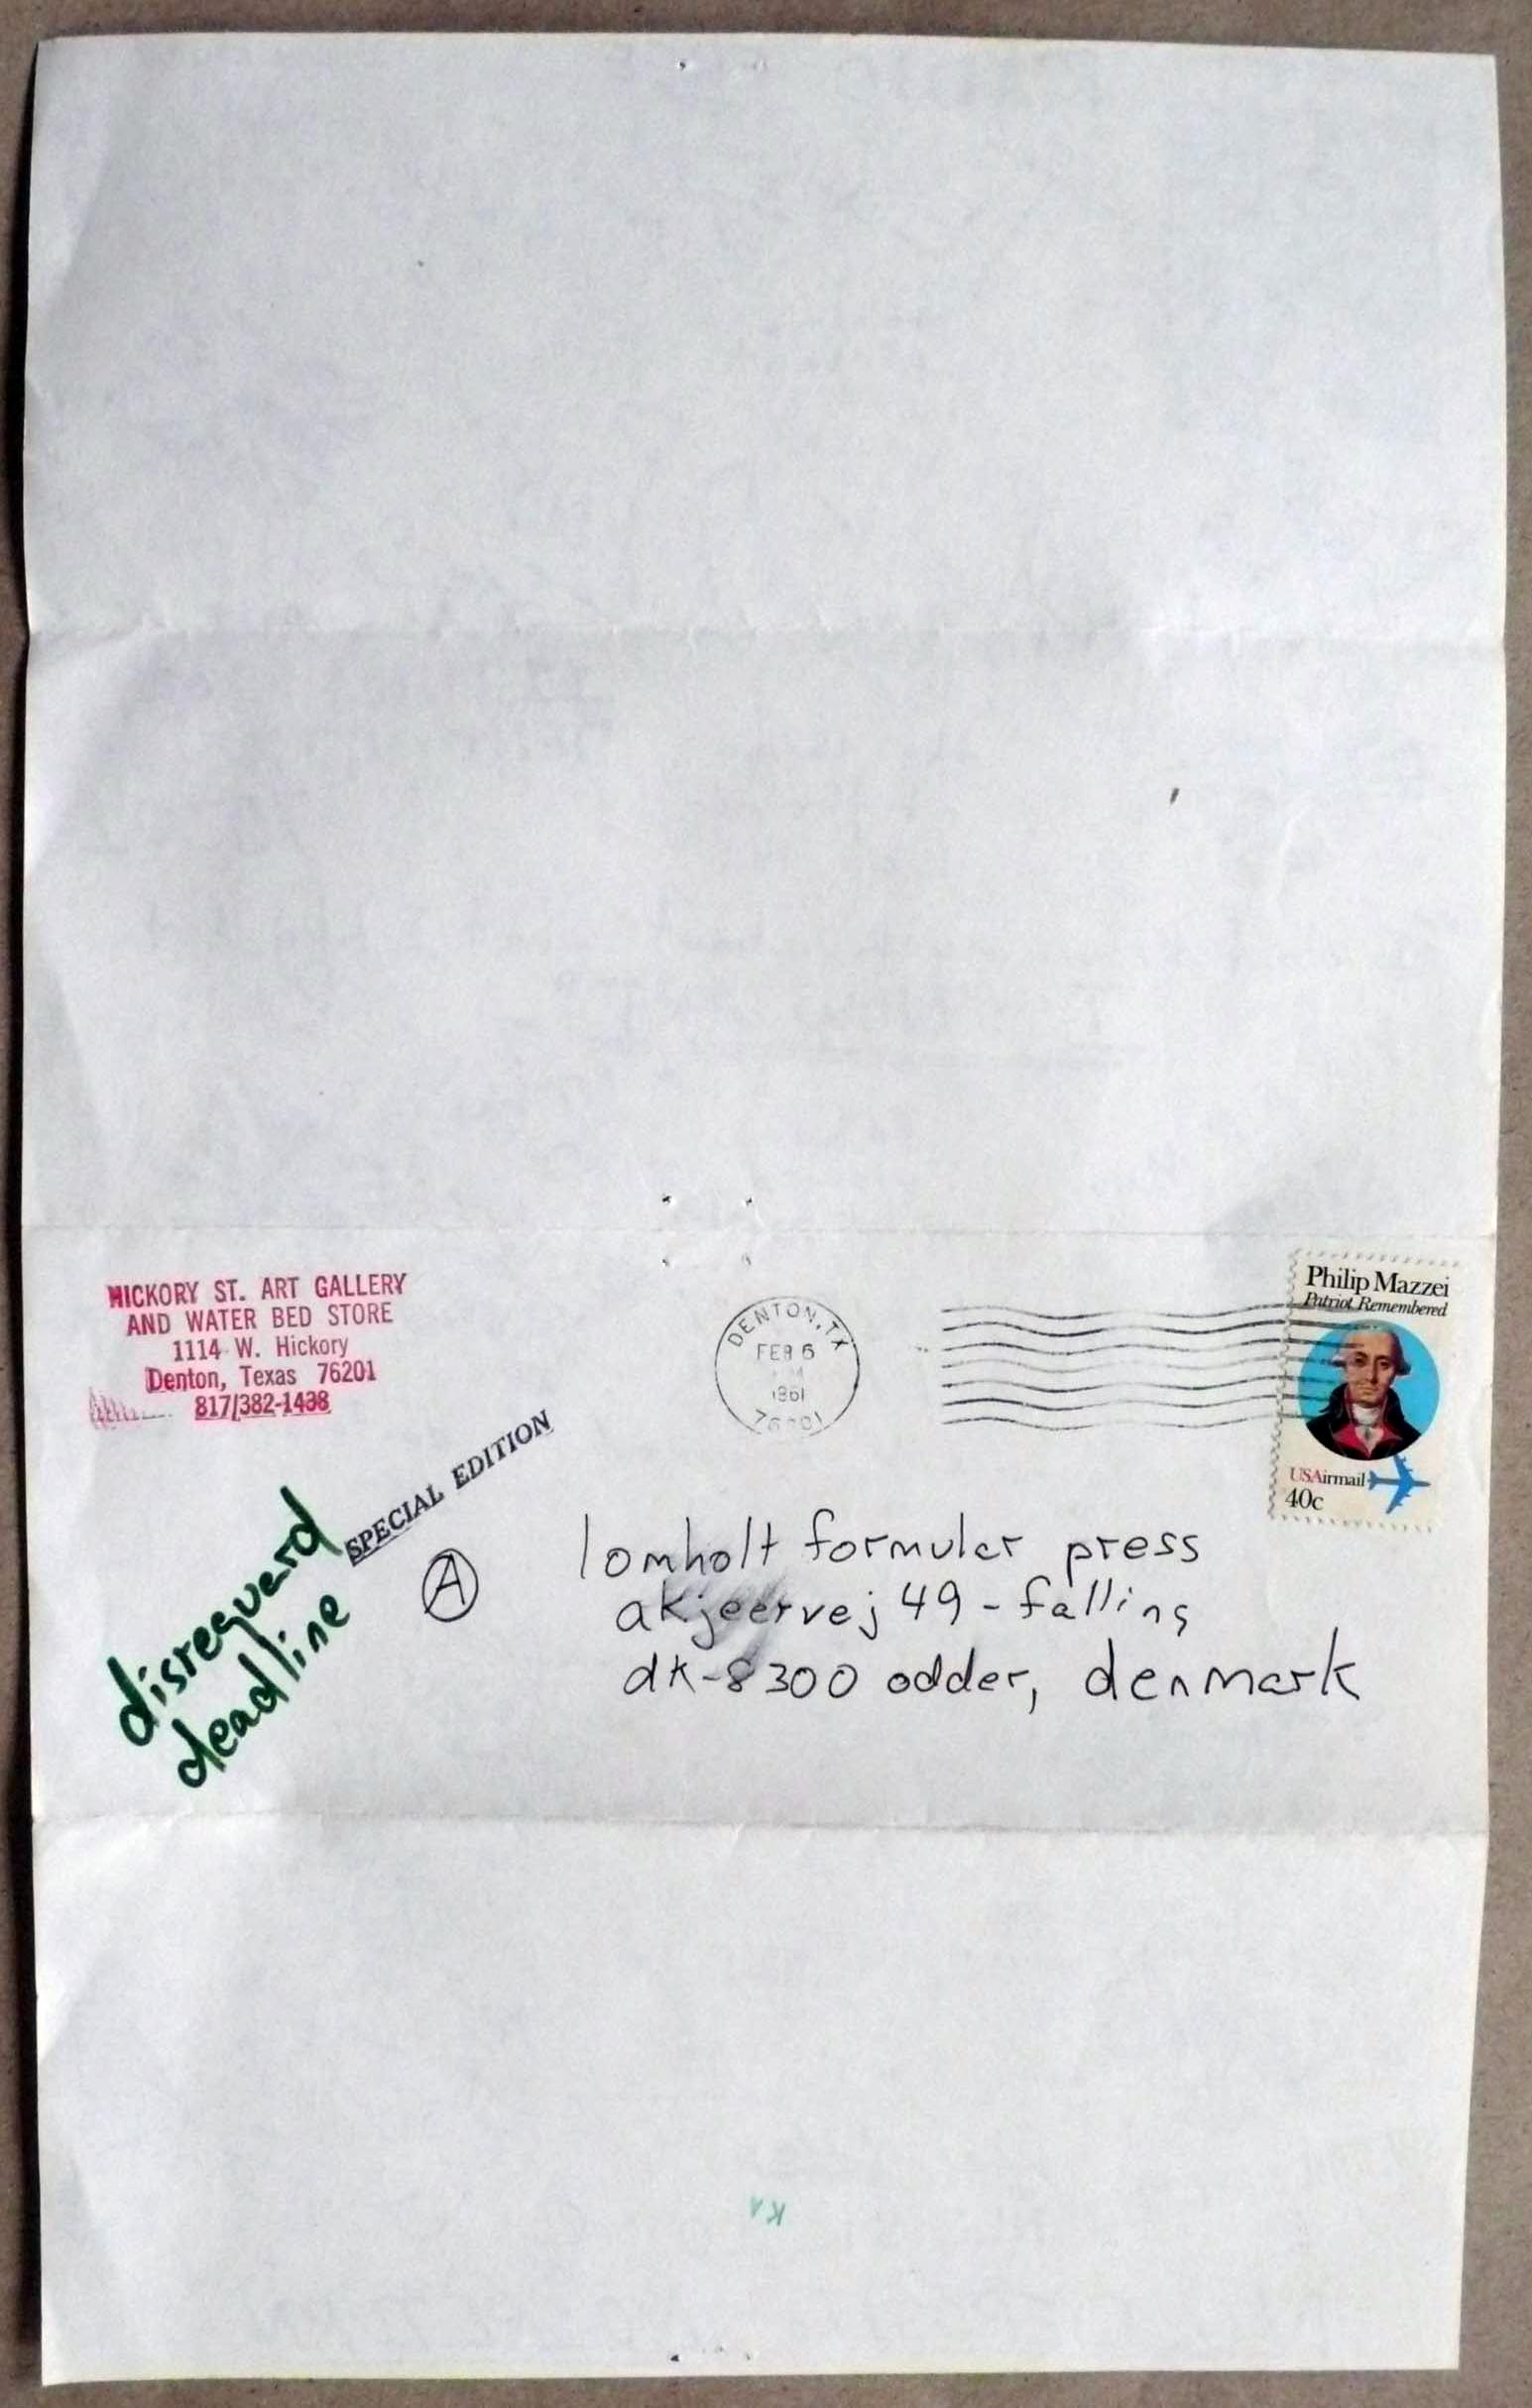 HICKORY ST. ART GALLERY
AND WATER BED STORE
1114 W. Hickory
Denton, Texas 76201
817/382-1438
DENTON, TX
FEB 6
1981
76201
Philip Mazzei
Patriot Remembered
USAirmail
40c
SPECIAL EDITION
disreguard
deadline
A
lomholt formular press
akjeervej 49 - falling
dk-8300 odder, denmark